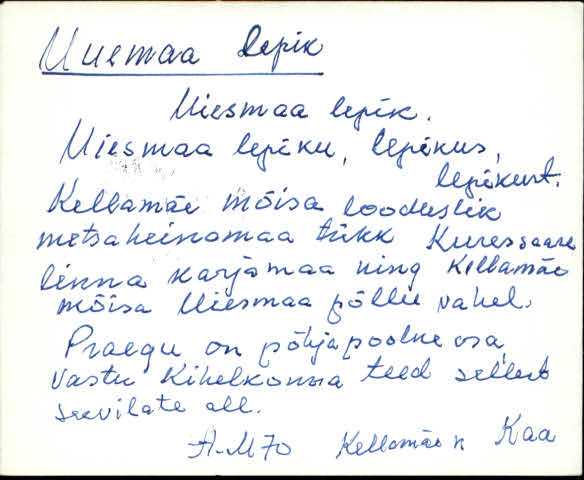 Uuemaa lepik
Uiesmaa lepik.
Uiesmaa lepiku, lepikus,
lepikust.
Kellamäe mõisa looduslik
metsaheinamaa tükk Kuressaare
linna karjamaa ning Kellamäe
mõisa Uiesmaa põllu vahel.
Praegu on põhjapoolne osa
vastu Kihelkonna teed sellest
seevilate all.
A-M70 Kellamäe k Kaa